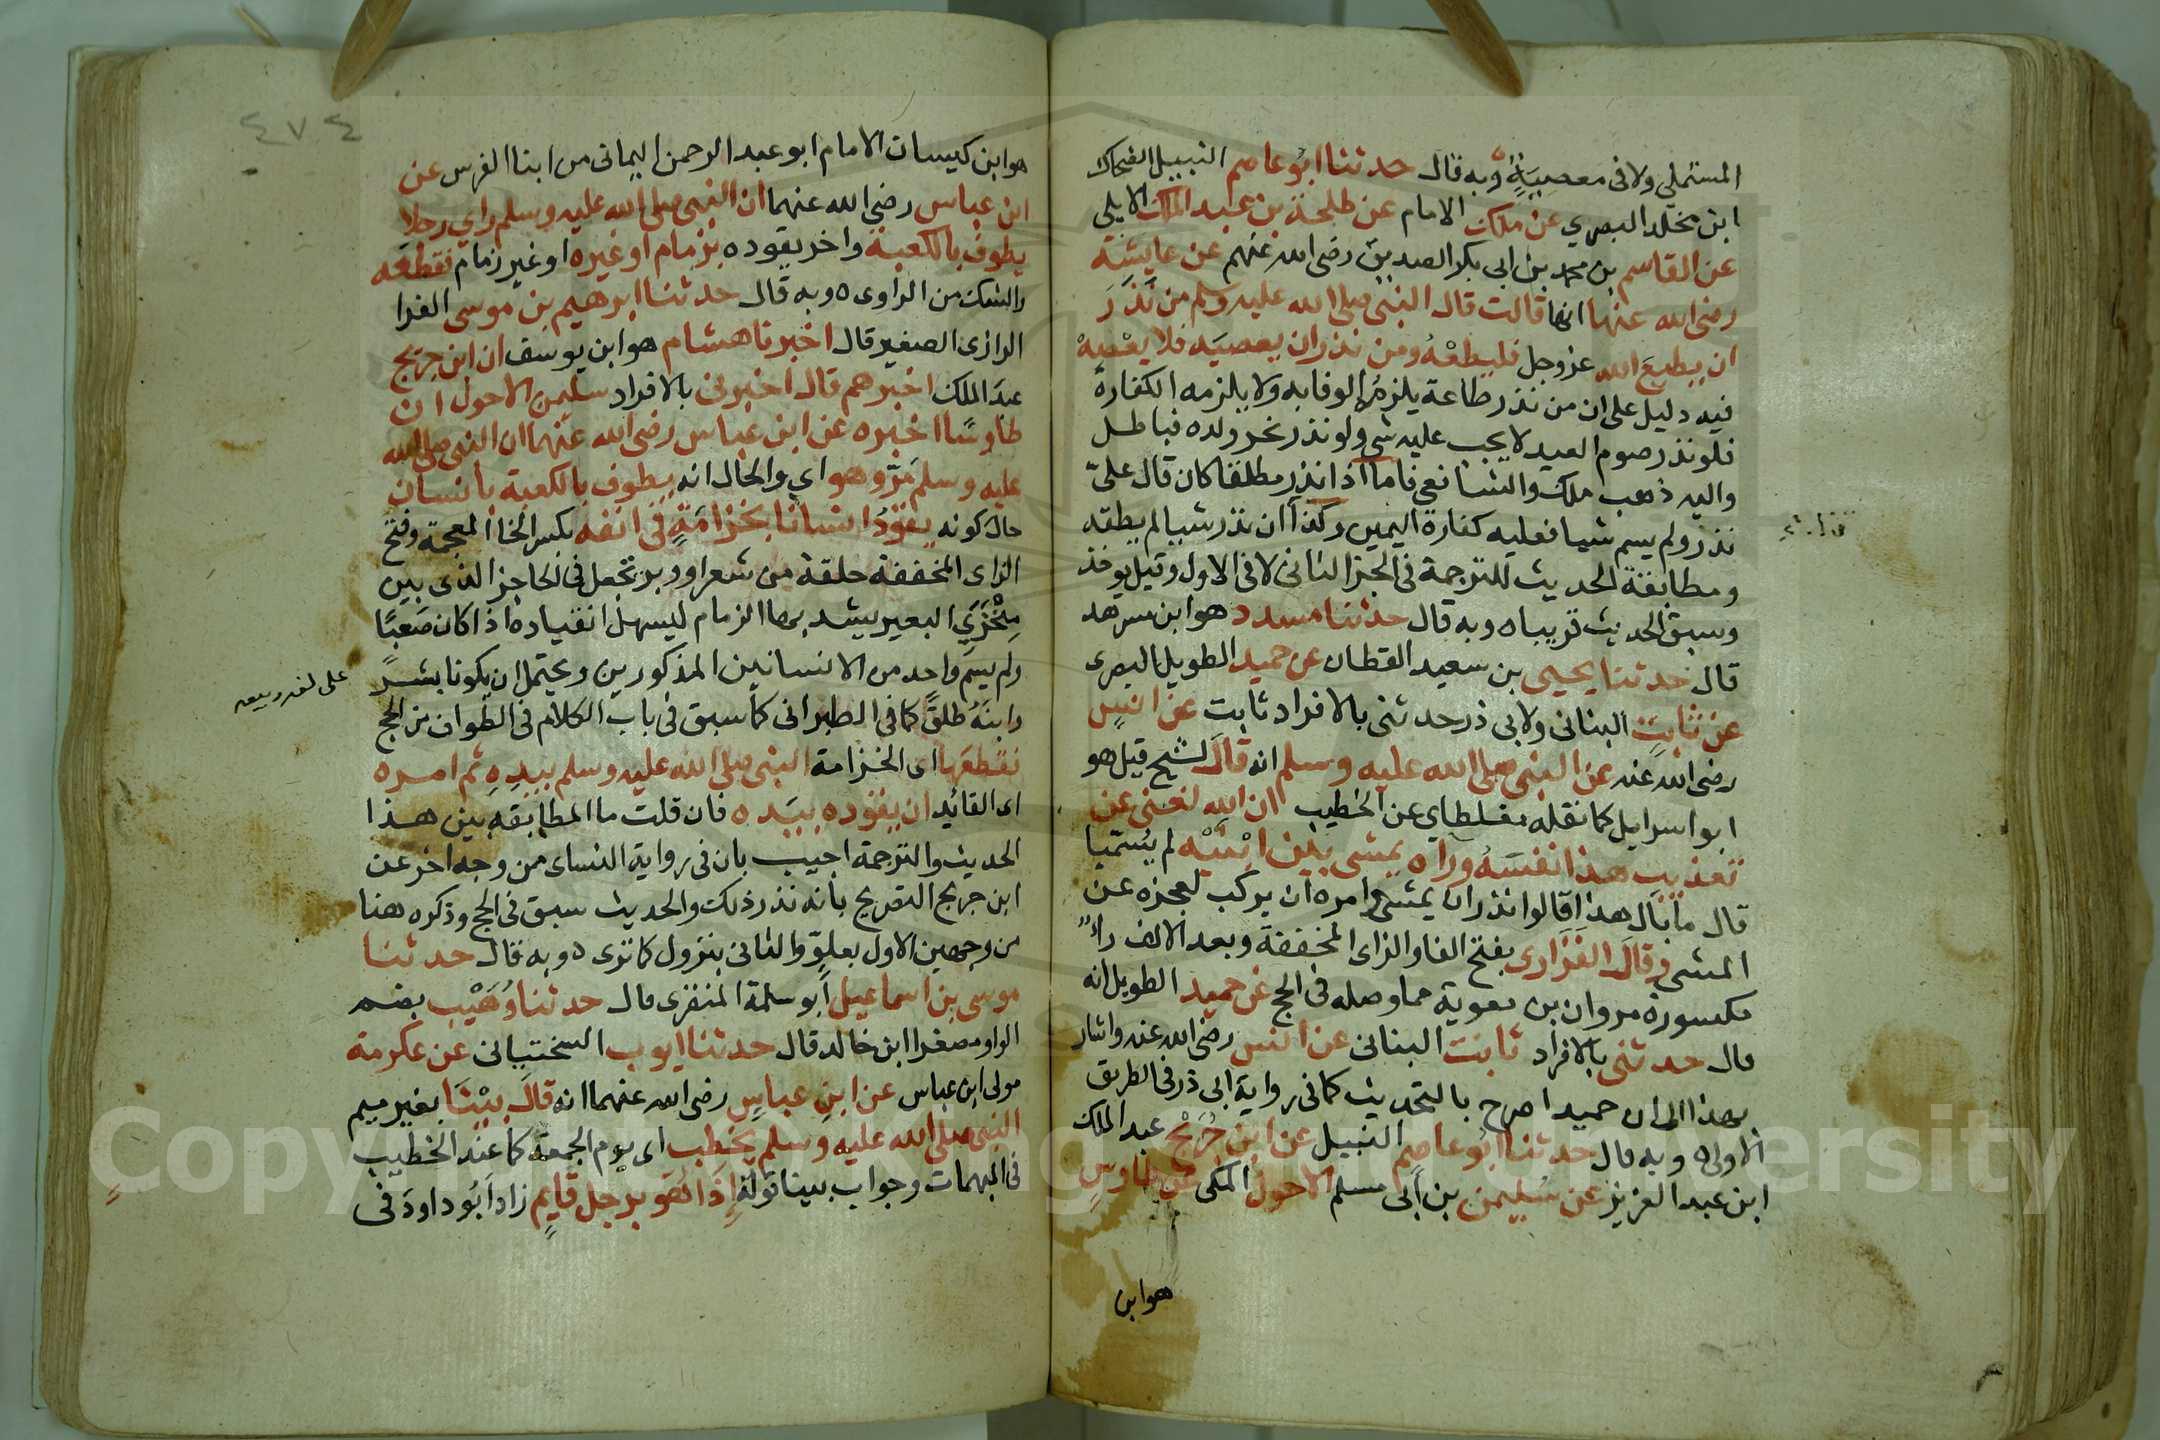 المستملي ولا في معصية وبه قال حدثنا ابو عاصم النبيل الضحاك
ابن مخلد البصري عن ملك الامام عن طلحة بن عبد الملك الايلي
عن القاسم بن محمد بن ابي بكر الصديق رضي الله عنهم عن عايشة
رضي الله عنها انها قالت قال النبي صلي الله عليه وسلم من نذر
ان يطيع الله عز وجل فليطعه ومن نذر ان يعصيه فلا يعصه
فيه دليل على ان من نذر طاعة يلزمه الوفا به ولا يلزمه الكفارة
فلو نذر صوم العيد لا يجب عليه شي ولو نذر نحر ولده فباطل
واليه ذهب ملك والشافعي فاما اذا نذر مطلقا كان قال على
نذر ولم يسم شيا فعليه كفارة اليمين وكذا ان نذر شيا لم يطقه
ومطابقة الحديث للترجمة في الجز الثاني لا في الاول وقيل يوخذ
وسبق الحديث قريبا ه وبه قال حدثنا مسدد هو ابن سرهد
قال حدثنا يحيى بن سعيد القطان عن حميد الطويل البصرى
عن ثابت البناني ولابي ذر حدثني بالافراد ثابت عن انس
رضي الله عنه عن النبي صلي الله عليه وسلم انه قال لشيخ قيل هو
ابو اسرايل كما نقله مغلطاي عن الخطيب ان الله لغني عن
تعذيب هذا نفسه وراه يمشي بين ابنيه لم يسميا
قال ما بال هذا قالوا نذر ان يمشي وامره ان يركب لعجزه عن
المشي وقال الفزارى بفتح الفا والزاى المخففة وبعد الالف راء
مكسورة مروان بن معوية مما وصله في الحج عن حميد الطويل انه
قال حدثني بالافراد ثابت البناني عن انس رضي الله عنه واشار
بهذا الى ان حميدا صرح بالتحديث كما في رواية ابي ذر في الطريق
الاولى ه وبه قال حدثنا ابو عاصم النبيل عن ابن جريج عبد الملك
ابن عبد العزيز عن سليمن بن ابي مسلم الاحول المكي عن طاوس
هو ابن
٤٧٤
هو ابن كيسان الامام ابو عبد الرحمن اليماني من ابنا الفرس عن
ابن عباس رضي الله عنهما ان النبي صلي الله عليه وسلم راي رجلا
يطوف بالكعبة واخر يقوده بزمام او غيره او غير زمام فقطعه
والشك من الراوى ه وبه قال حدثنا ابرهيم بن موسى الفرا
الرازى الصغير قال اخبرنا هشام هو ابن يوسف ان ابن جريج
عبد الملك اخبرهم قال اخبرني بالافراد سليمن الاحول ان
طاوسا اخبره عن ابن عباس رضي الله عنهما ان النبي صلي الله
عليه وسلم مر وهو اي والحال انه يطوف بالكعبة بانسان
حال كونه يقود انسانا بخزامة في انفه بكسر الخا المعجمة وفتح
الزاى المخففة حلقة من شعر او وبر تجعل في الحاجز الذى بين
منخري البعير يشد بها الزمام ليسهل انقياده اذا كان صعبا
ولم يسم واحد من الانسانين المذكورين ويحتمل ان يكونا بشر
وابنه طلق كما في الطبراني كما سبق في باب الكلام في الطواف من الحج
فقطعها اى الخزامة النبي صلي الله عليه وسلم بيده ثم امره
اى القائد ان يقوده بيده فان قلت ما المطابقة بين هذا
الحديث والترجمة اجيب بان في رواية النساى من وجه اخر عن
ابن جريج التصريح بانه نذر ذلك والحديث سبق في الحج وذكره هنا
من وجهين الاول بعلو والثاني بنزول كما ترى ه وبه قال حدثنا
موسى بن اسماعيل ابو سلمة المنقرى قال حدثنا وهيب بضم
الواو مصغرا ابن خالد قال حدثنا ايوب السختياني عن عكرمة
مولى ابن عباس عن ابن عباس رضي الله عنهما انه قال بينا بغير ميم
النبي صلي الله عليه وسلم يخطب اى يوم الجمعة كما عند الخطيب
في المبهمات وجواب بينا قوله اذا هو برجل قايم زاد ابو داود في
Copyright © King Saud University